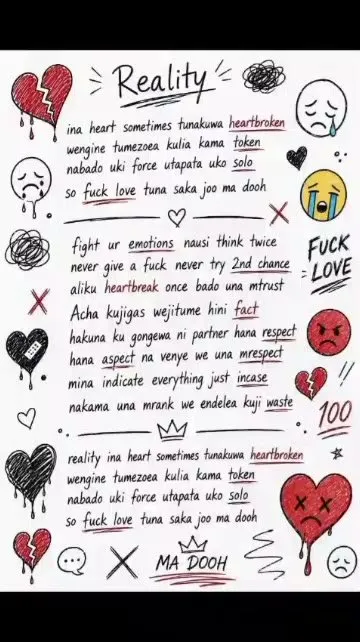 Reality
ina heart sometimes tunakuwa heartbroken
wengine tumezoea kulia kama token
nabado uki force utapata uko solo
so fuck love tuna saka joo ma dooh
fight ur emotions nausi think twice
never give a fuck never try 2nd chance
aliku heartbreak once bado una mtrust
Acha kujigas wejitume hini fact
hakuna ku gongewa ni partner hana respect
hana aspect na venye we una mrespect
mina indicate everything just incase
nakama una mrank we endelea kuji waste
FUCK
LOVE
100
reality ina heart sometimes tunakuwa heartbroken
wengine tumezoea kulia kama token
nabado uki force utapata uko solo
so fuck love tuna saka joo ma dooh
MA DOOH